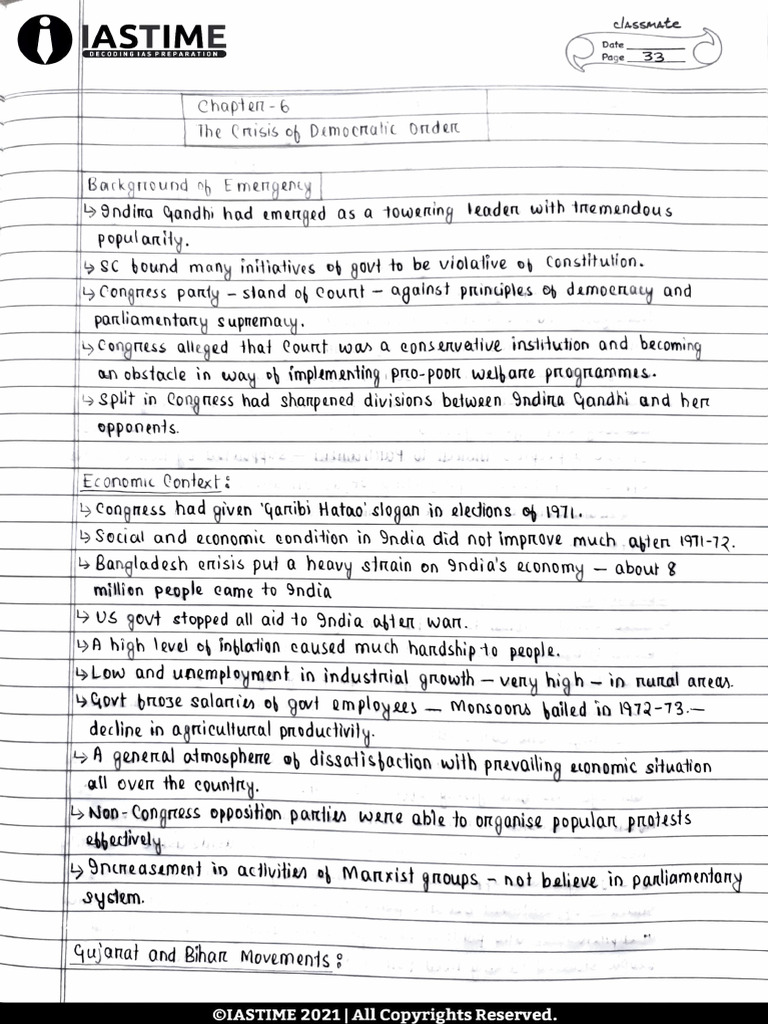 IASTIME
DECODING IAS PREPARATION
classmate
Date
Page 33
Chapter - 6
The Crisis of Democratic Order
Background of Emergency
↳ Indira Gandhi had emerged as a towering leader with tremendous
popularity.
↳ SC found many initiatives of govt to be violative of Constitution.
↳ Congress party – stand of Court – against principles of democracy and
parliamentary supremacy.
↳ Congress alleged that Court was a conservative institution and becoming
an obstacle in way of implementing pro-poor welfare programmes.
↳ Split in Congress had sharpened divisions between Indira Gandhi and her
opponents.
Economic Context :
↳ Congress had given 'Garibi Hatao' slogan in elections of 1971.
↳ Social and economic condition in India did not improve much after 1971-72.
↳ Bangladesh crisis put a heavy strain on India's economy – about 8
million people came to India
↳ US govt stopped all aid to India after war.
↳ A high level of inflation caused much hardship to people.
↳ Low and unemployment in industrial growth – very high – in rural areas.
↳ Govt froze salaries of govt employees – Monsoons failed in 1972-73. –
decline in agricultural productivity.
↳ A general atmosphere of dissatisfaction with prevailing economic situation
all over the country.
↳ Non-Congress opposition parties were able to organise popular protests
effectively.
↳ Increasement in activities of Marxist groups – not believe in parliamentary
system.
Gujarat and Bihar Movements :
©IASTIME 2021 | All Copyrights Reserved.